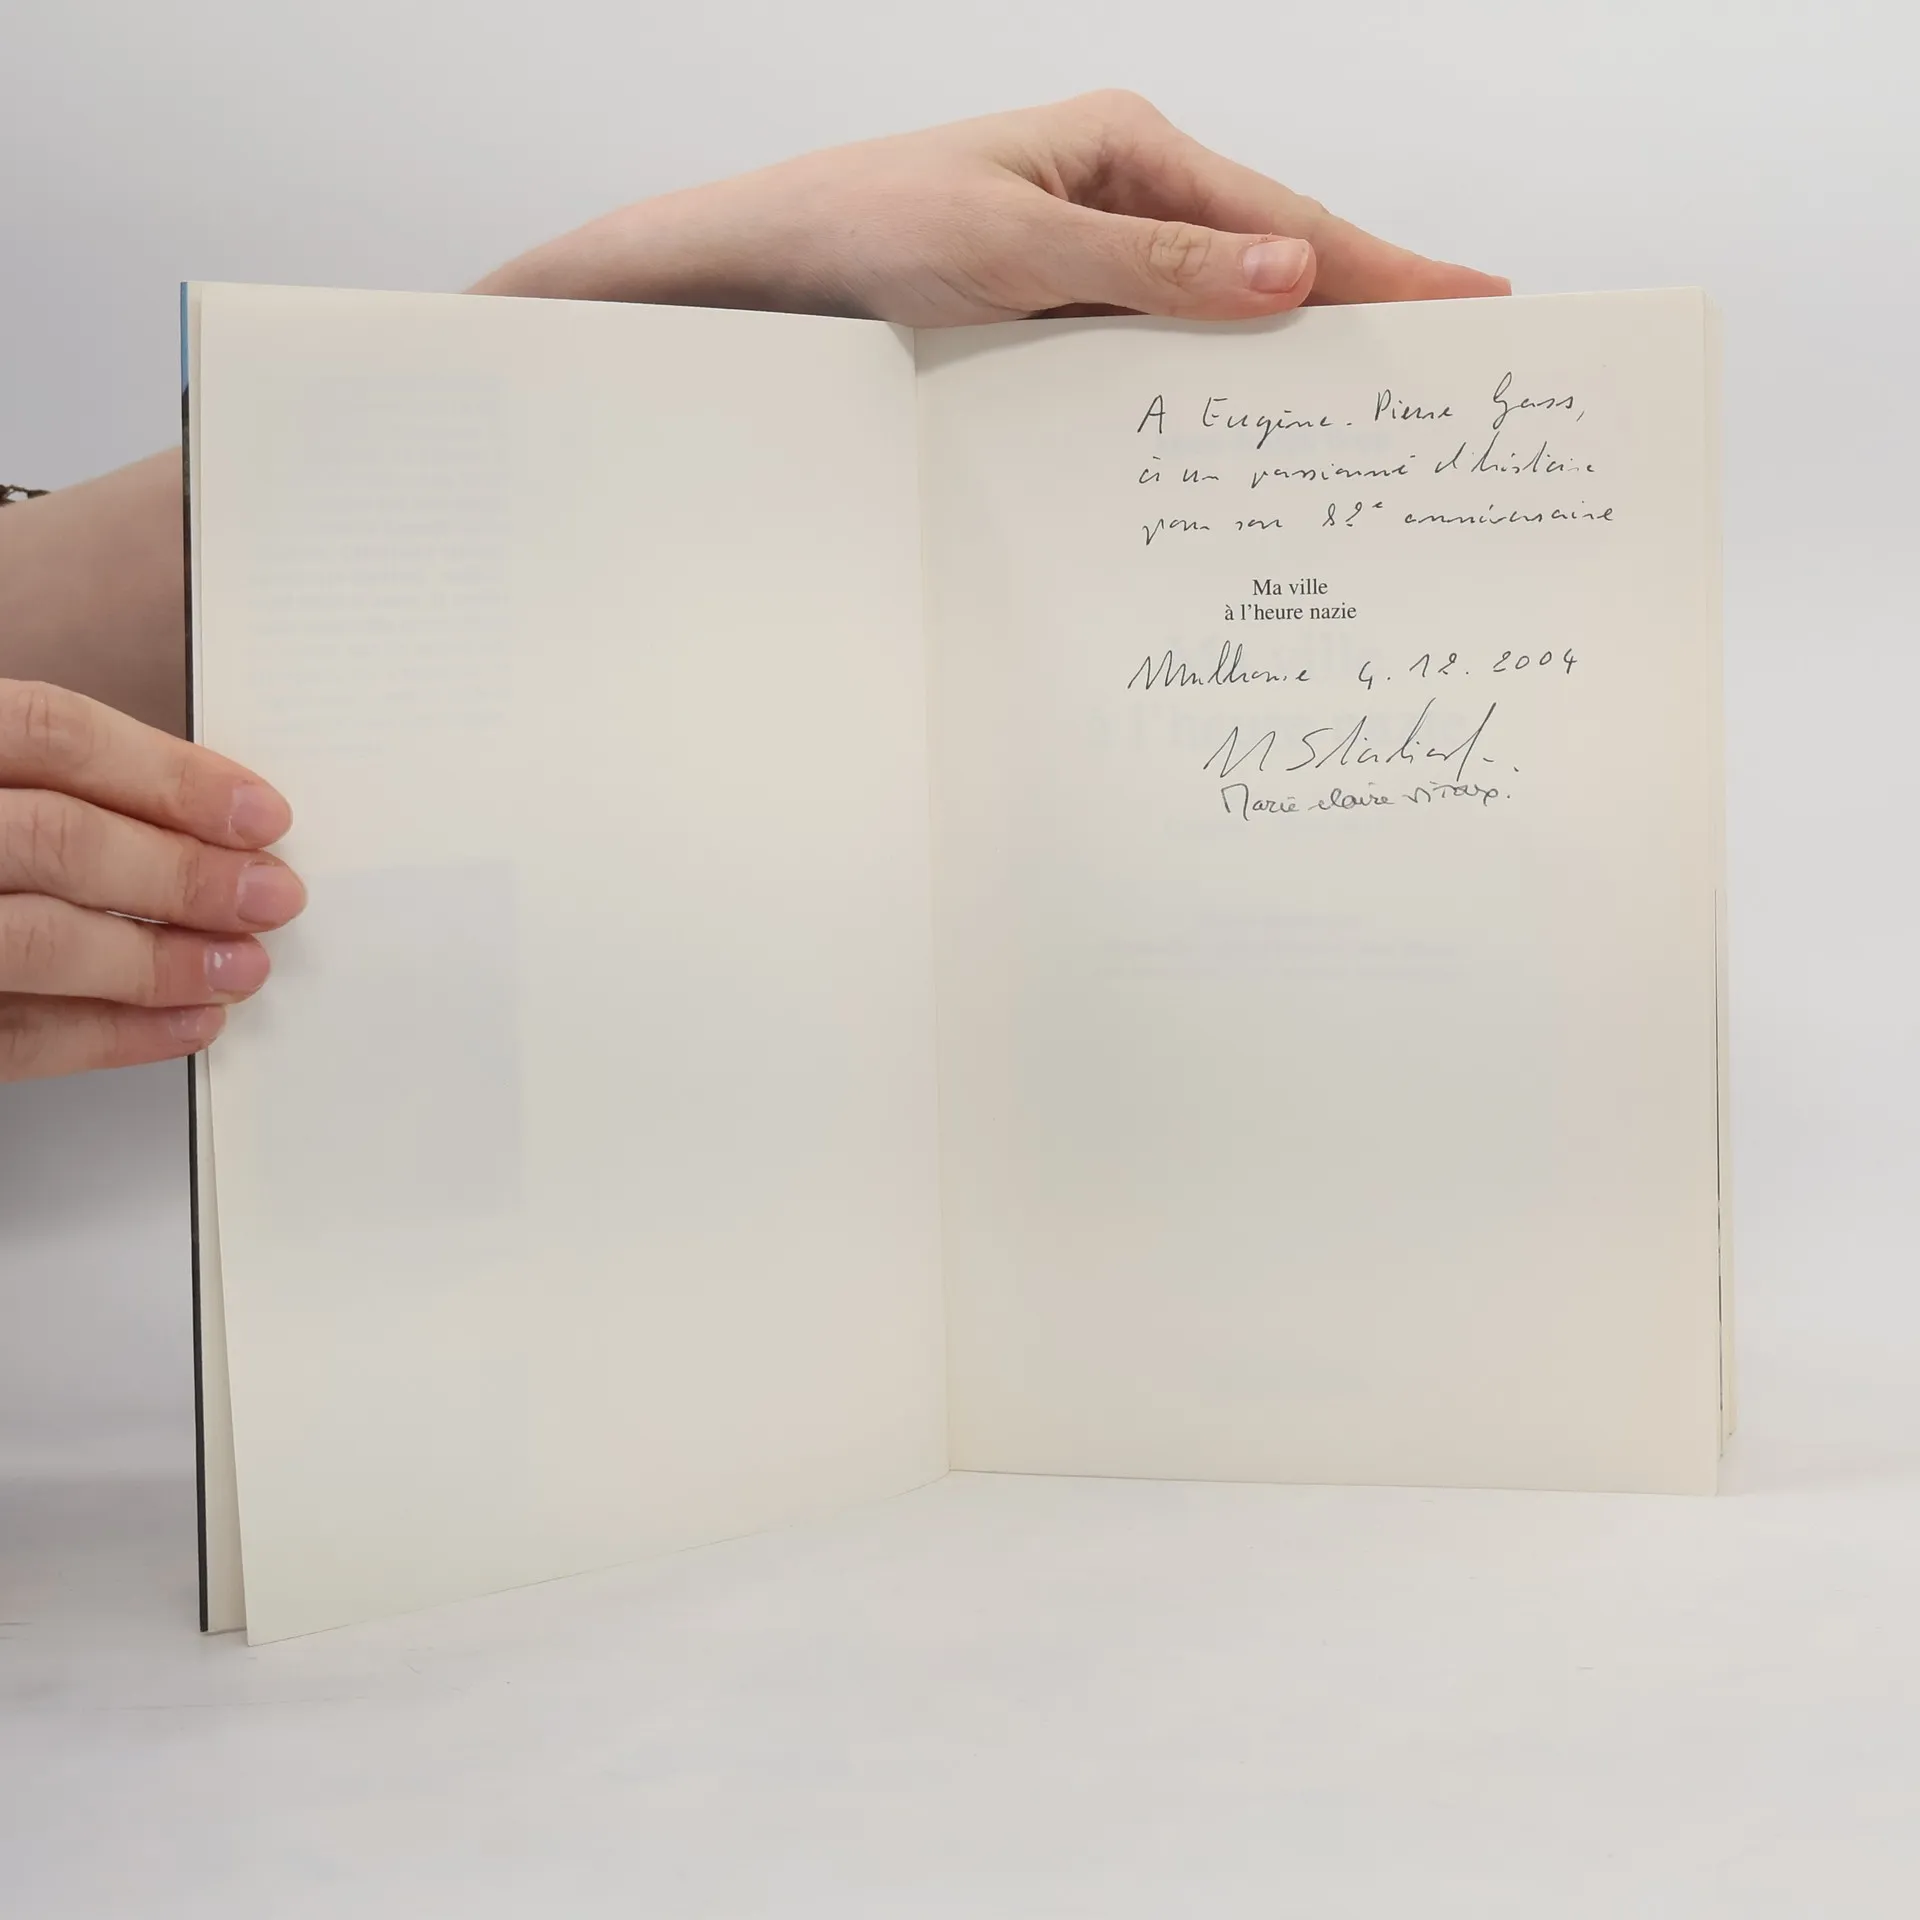 A Eugène-Pierre Gass,
à un passionné d'histoire
pour son 82e anniversaire
Ma ville
à l'heure nazie
Mulhouse 4.12.2004
M
Marie claire vitoux.